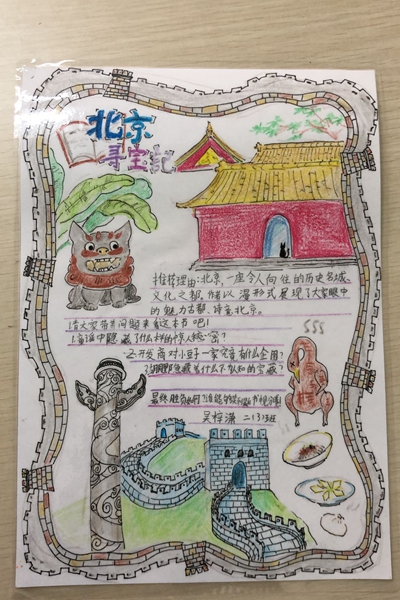 北京
寻宝记
推荐理由:北京,一座令人向往的历史名城
文化之都,作者以漫形式展现了大家眼中
的魅力古都,诗意北京。
请大家带着问题来看这本书吧!
1.童谣中隐藏了什么样的惊人秘密?
2.开发商对小豆一家究竟有什么企图?
3.胡同那里藏着什么不为人知的宝藏?
最终胜负如何?
吴梓潇 二(3)班